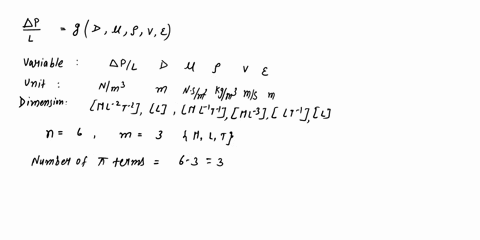 ΔP/L = g(D, μ, ρ, V, ε)
Variable : ΔP/L D μ ρ V ε
Unit : N/m³ m N·s/m² kg/m³ m/s m
Dimension: [ML⁻²T⁻²], [L], [ML⁻¹T⁻¹], [ML⁻³], [LT⁻¹], [L]
n = 6, m = 3 {M, L, T}
Number of π terms = 6-3 = 3